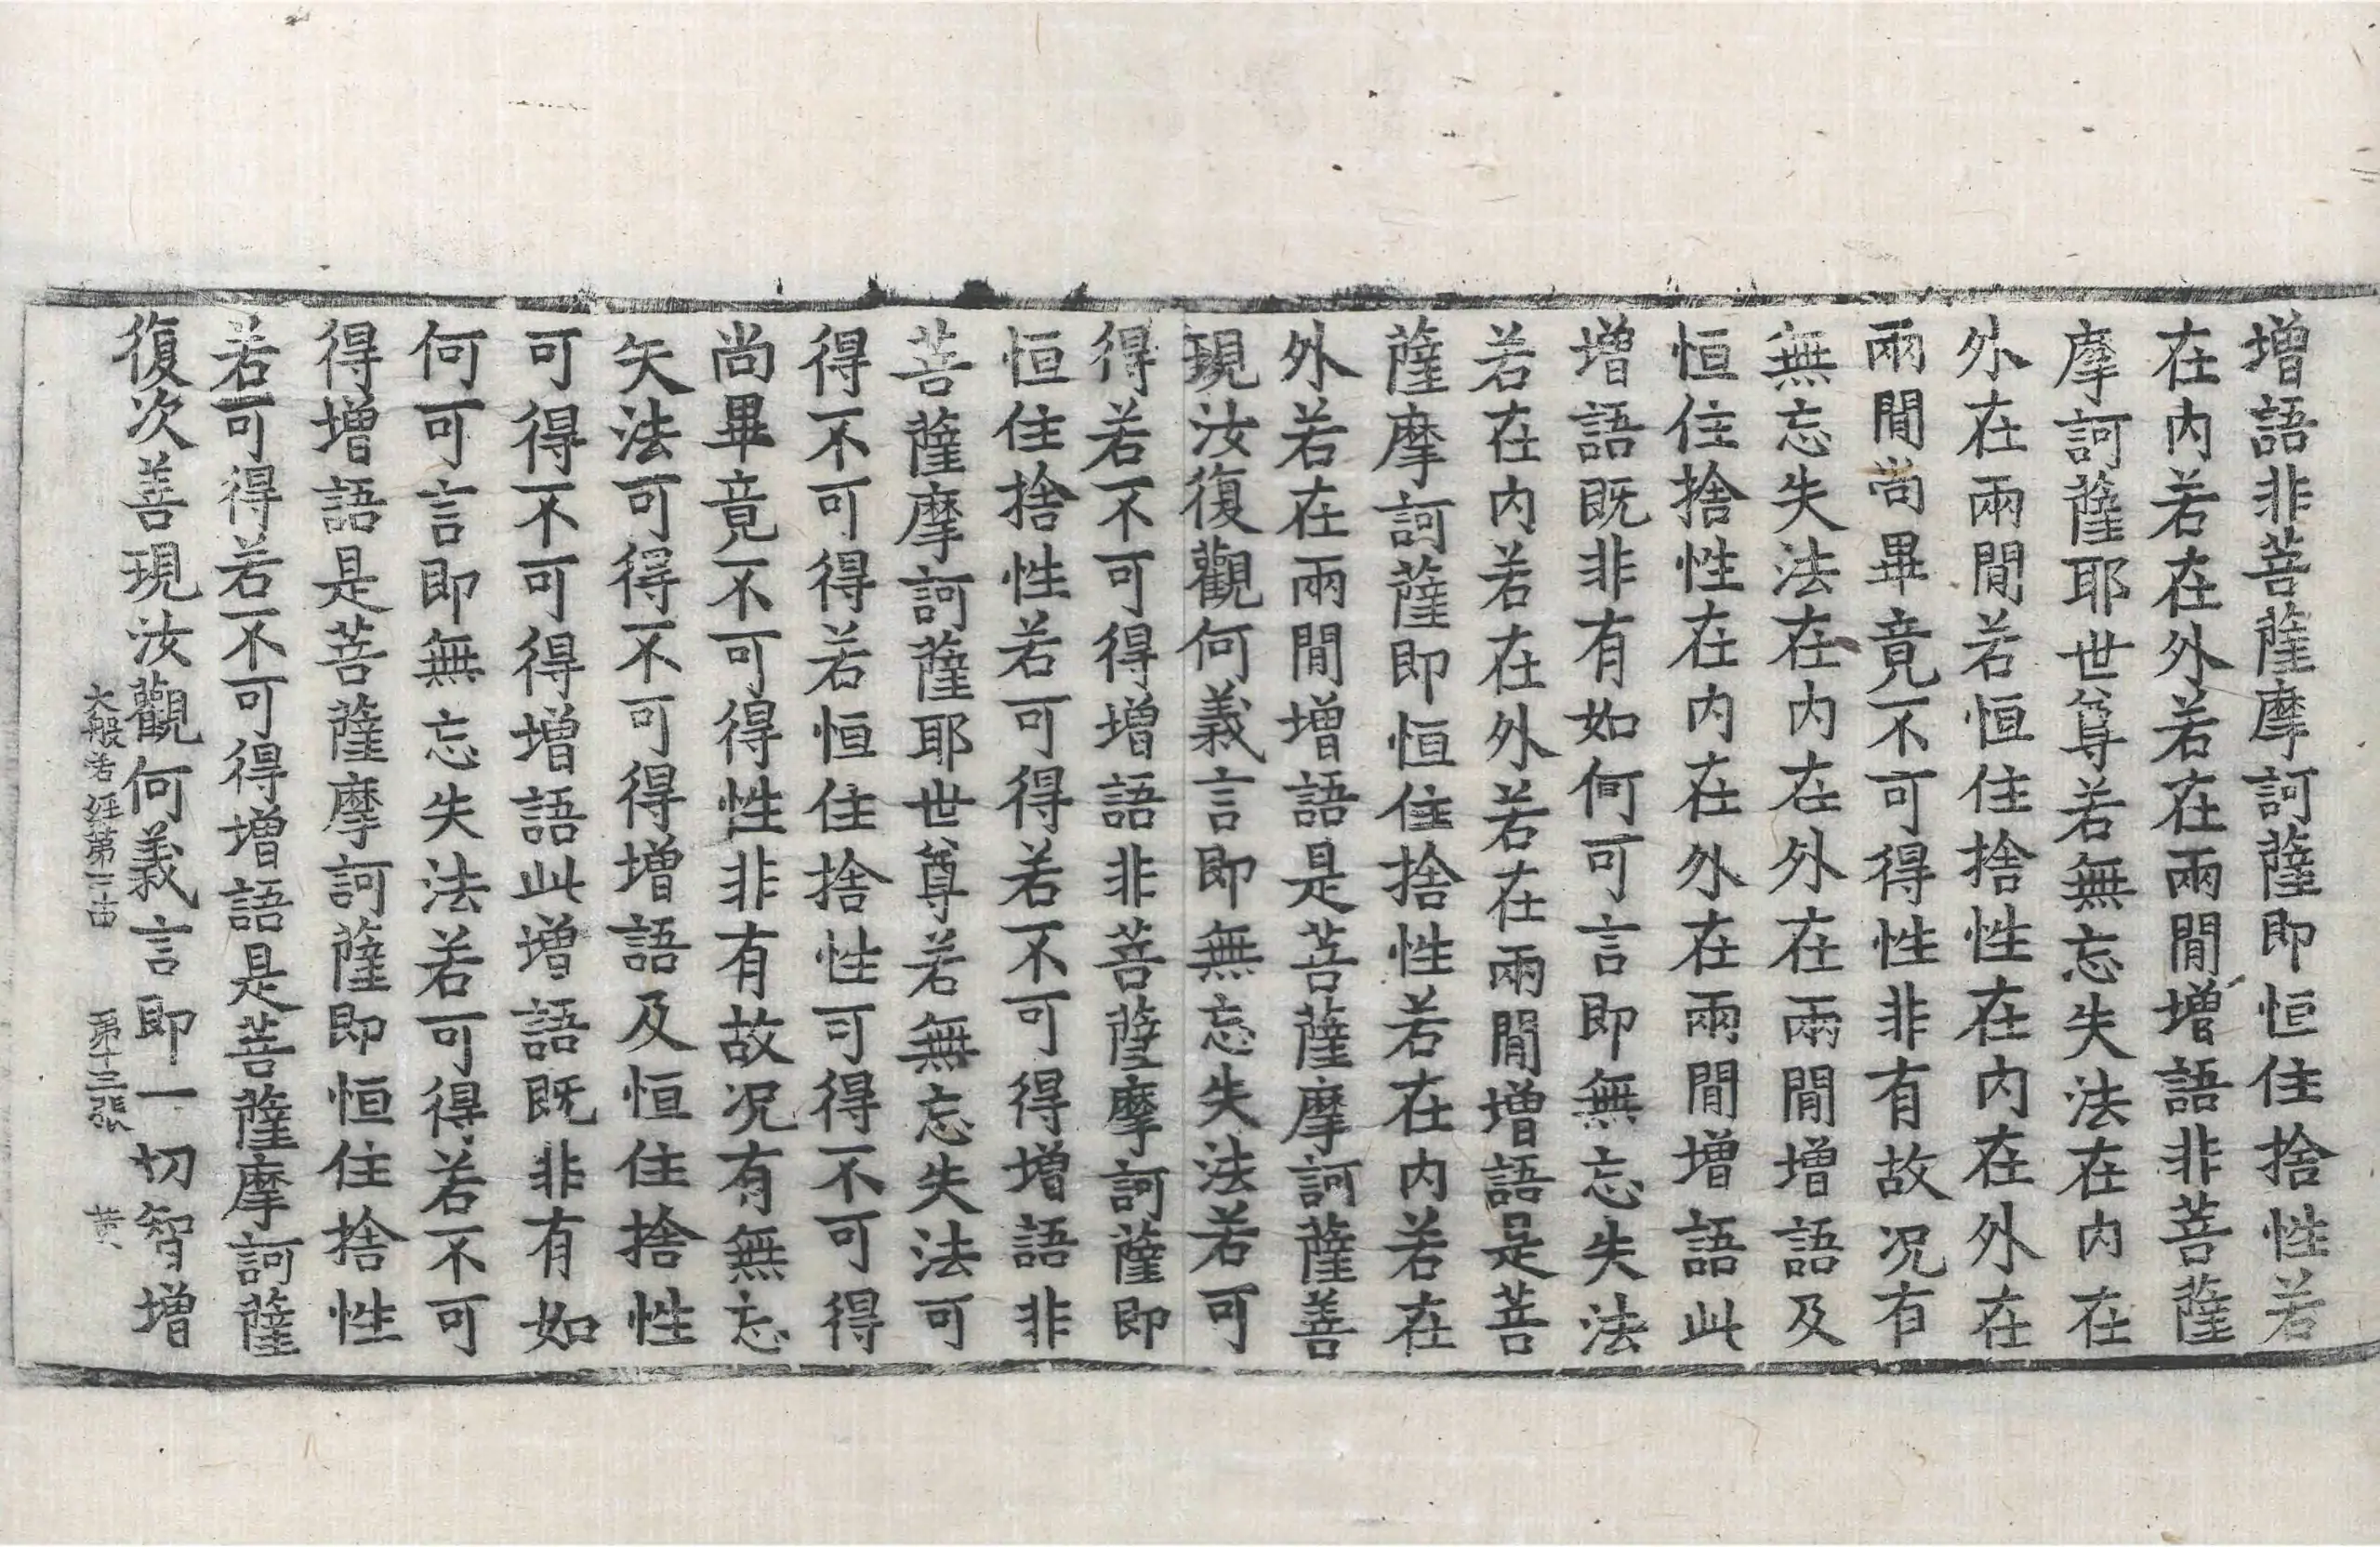 增語非菩薩摩訶薩即恒住捨性若
在内若在外若在兩閒增語非菩薩
摩訶薩耶世尊若無忘失法在内在
外在兩閒若恒住捨性在内在外在
兩閒尚畢竟不可得性非有故况有
無忘失法在内在外在兩閒增語及
恒住捨性在内在外在兩閒增語此
增語既非有如何可言即無忘失法
若在内若在外若在兩閒增語是菩
薩摩訶薩即恒住捨性若在内若在
外若在兩閒增語是菩薩摩訶薩善
現汝復觀何義言即無忘失法若可
得若不可得增語非菩薩摩訶薩即
恒住捨性若可得若不可得增語非
菩薩摩訶薩耶世尊若無忘失法可
得不可得若恒住捨性可得不可得
尚畢竟不可得性非有故况有無忘
矢法可得不可得增語及恒住捨性
可得不可得增語此增語既非有如
何可言即無忘失法若可得若不可
得增語是菩薩摩訶薩即恒住捨性
若可得若不可得增語是菩薩摩訶薩
復次善現汝觀何義言即一切智增
大般若經第三 第十三張